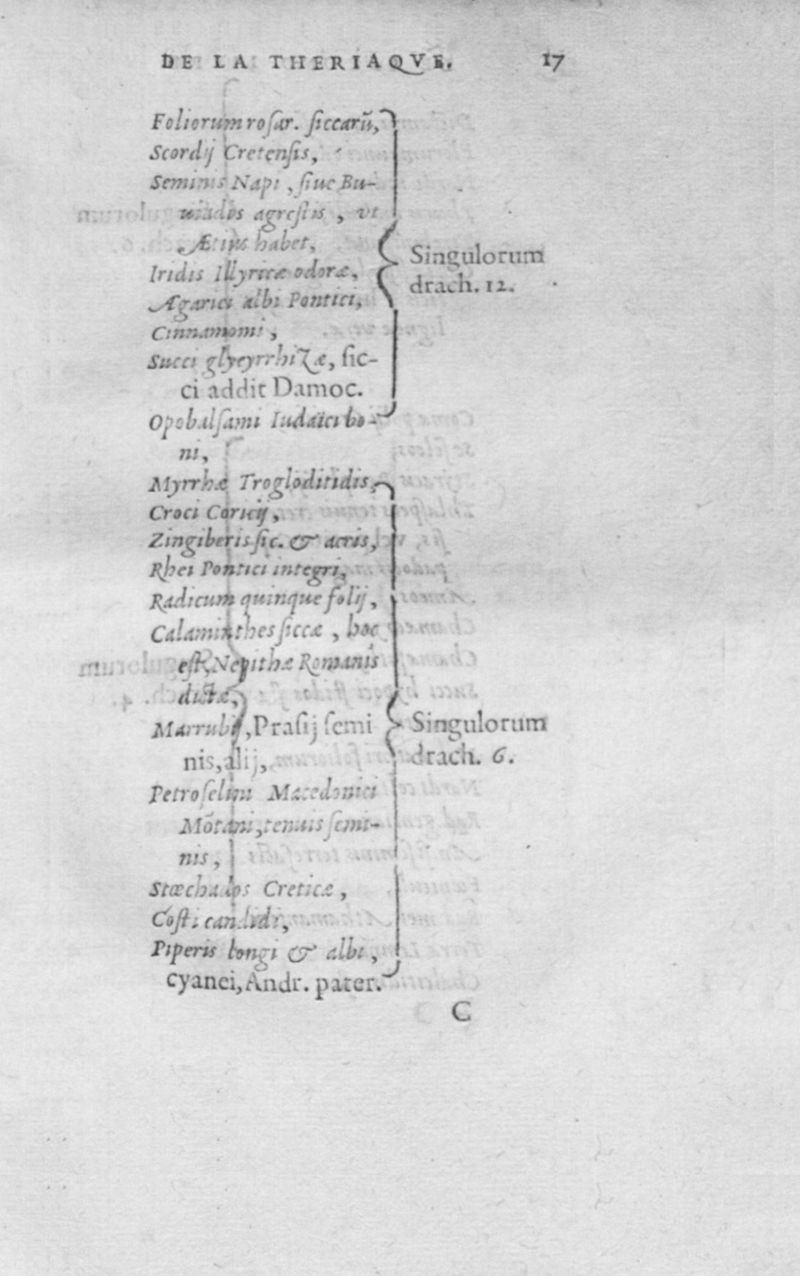 DE LA THERIAQVE. 17
Foliorum rosar. siccarũ,
Scordij Cretensis,
Seminis Napi, siue Bu-
niados agrestis, vt
Ætius habet,
Iridis Illyricæ odoræ,
Agarici albi Pontici,
Cinnamomi,
Succi glycyrrhizæ, sic-
ci addit Damoc.
Opobalsami Iudaici bo-
ni,
Singulorum
drach. 12.
Myrrhæ Trogloditidis,
Croci Coricij,
Zingiberis sic. & acris,
Rhei Pontici integri,
Radicum quinque folij,
Calaminthes siccæ, hoc
est, Nepithæ Romanis
dictæ,
Marrubij, Prasij semi
nis, alij,
Petroselini Macedonici
Mõtani, tenuis semi-
nis,
Stœchados Creticæ,
Costi candidi,
Piperis longi & albi,
cyanei, Andr. pater.
Singulorum
drach. 6.
C